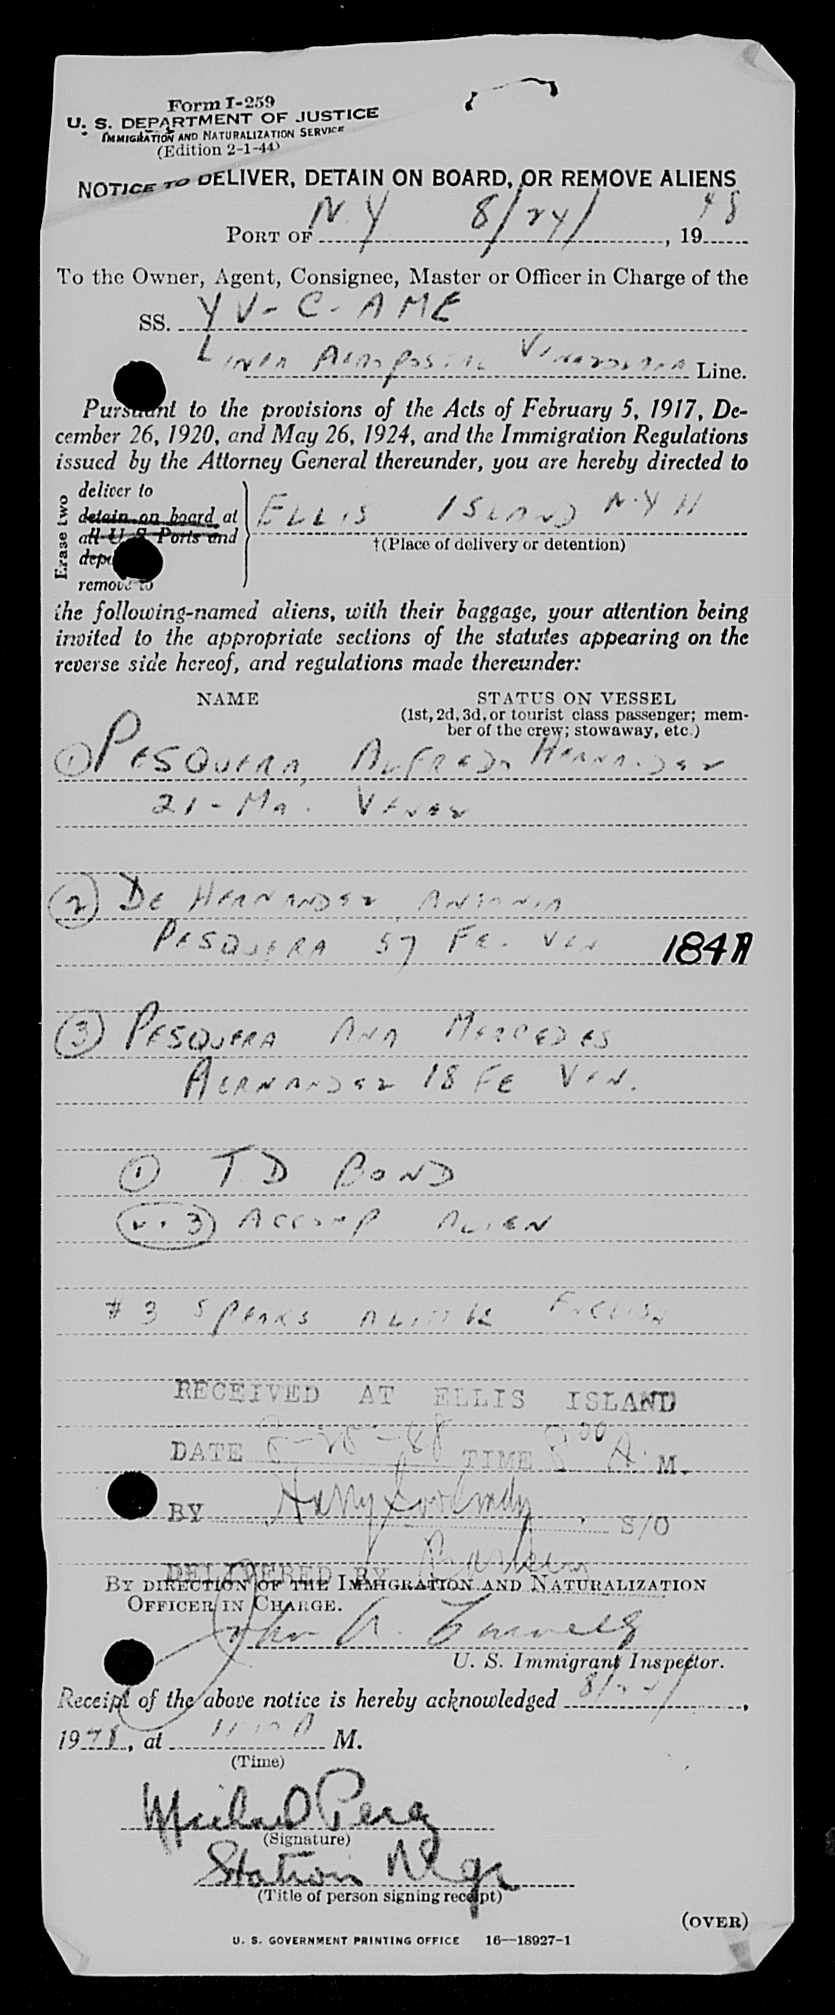 Form I-259
U. S. DEPARTMENT OF JUSTICE
IMMIGRATION AND NATURALIZATION SERVICE
(Edition 2-1-44)
NOTICE TO DELIVER, DETAIN ON BOARD, OR REMOVE ALIENS
PORT OF N.Y 8/24/, 1948
To the Owner, Agent, Consignee, Master or Officer in Charge of the
SS. YV-C-AME
LINEA AEROPOSTAL VENEZOLANA Line.
Pursuant to the provisions of the Acts of February 5, 1917, De-
cember 26, 1920, and May 26, 1924, and the Immigration Regulations
issued by the Attorney General thereunder, you are hereby directed to
Erase two
deliver to
detain on board at
all U S Ports and
remove to
ELLIS ISLAND N.Y H
†(Place of delivery or detention)
the following-named aliens, with their baggage, your attention being
invited to the appropriate sections of the statutes appearing on the
reverse side hereof, and regulations made thereunder:
NAME STATUS ON VESSEL
(1st, 2d, 3d, or tourist class passenger; mem-
ber of the crew; stowaway, etc.)
① PESQUERA, ALFREDO HERNANDEZ
21 - Ma. VENEZ
② DE HERNANDEZ, ANTONIA
PESQUERA 57 FE. VEN 184A
③ PESQUERA ANA MERCEDES
HERNANDEZ 18 FE VEN.
① T.D BOND
ACCOMP ALIEN
# 3 SPEAKS A LITTLE ENGLISH
RECEIVED AT ELLIS ISLAND
DATE 8-25-48 TIME 8 00 A. M.
BY Harry S/O
DELIVERED BY
BY DIRECTION OF THE IMMIGRATION AND NATURALIZATION
OFFICER IN CHARGE.
John A.
U. S. Immigrant Inspector.
Receipt of the above notice is hereby acknowledged 8/24/,
1948, at A M.
(Time)
Michael Perez
(Signature)
Station Mgr
(Title of person signing receipt)
(OVER)
U. S. GOVERNMENT PRINTING OFFICE 16—18927-1